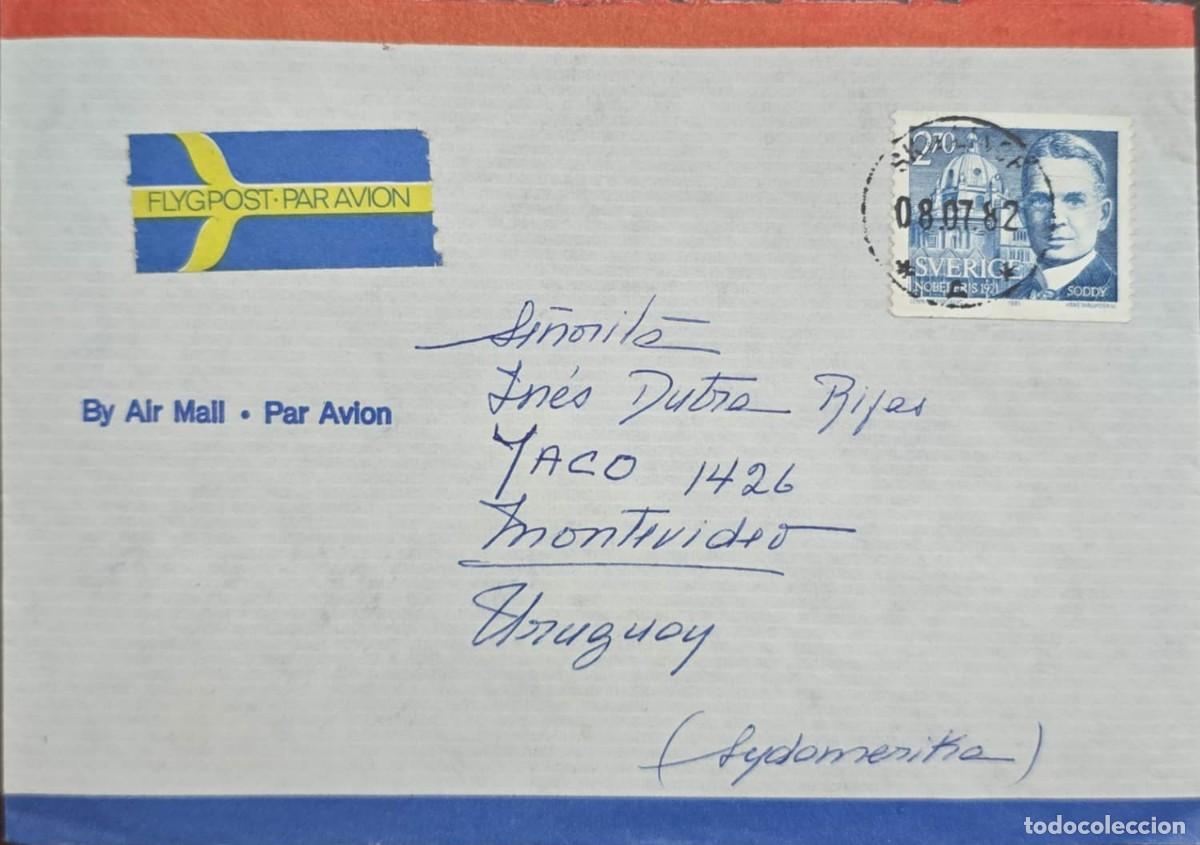 FLYGPOST·PAR AVION
2.70
08.07.82
SVERIGE
NOBELPRIS 1921
SODDY
1981
By Air Mail • Par Avion
Señorita
Inés Dutra Rijas
YACO 1426
Montevideo
Uruguay
(Sydamerika)
todocoleccion